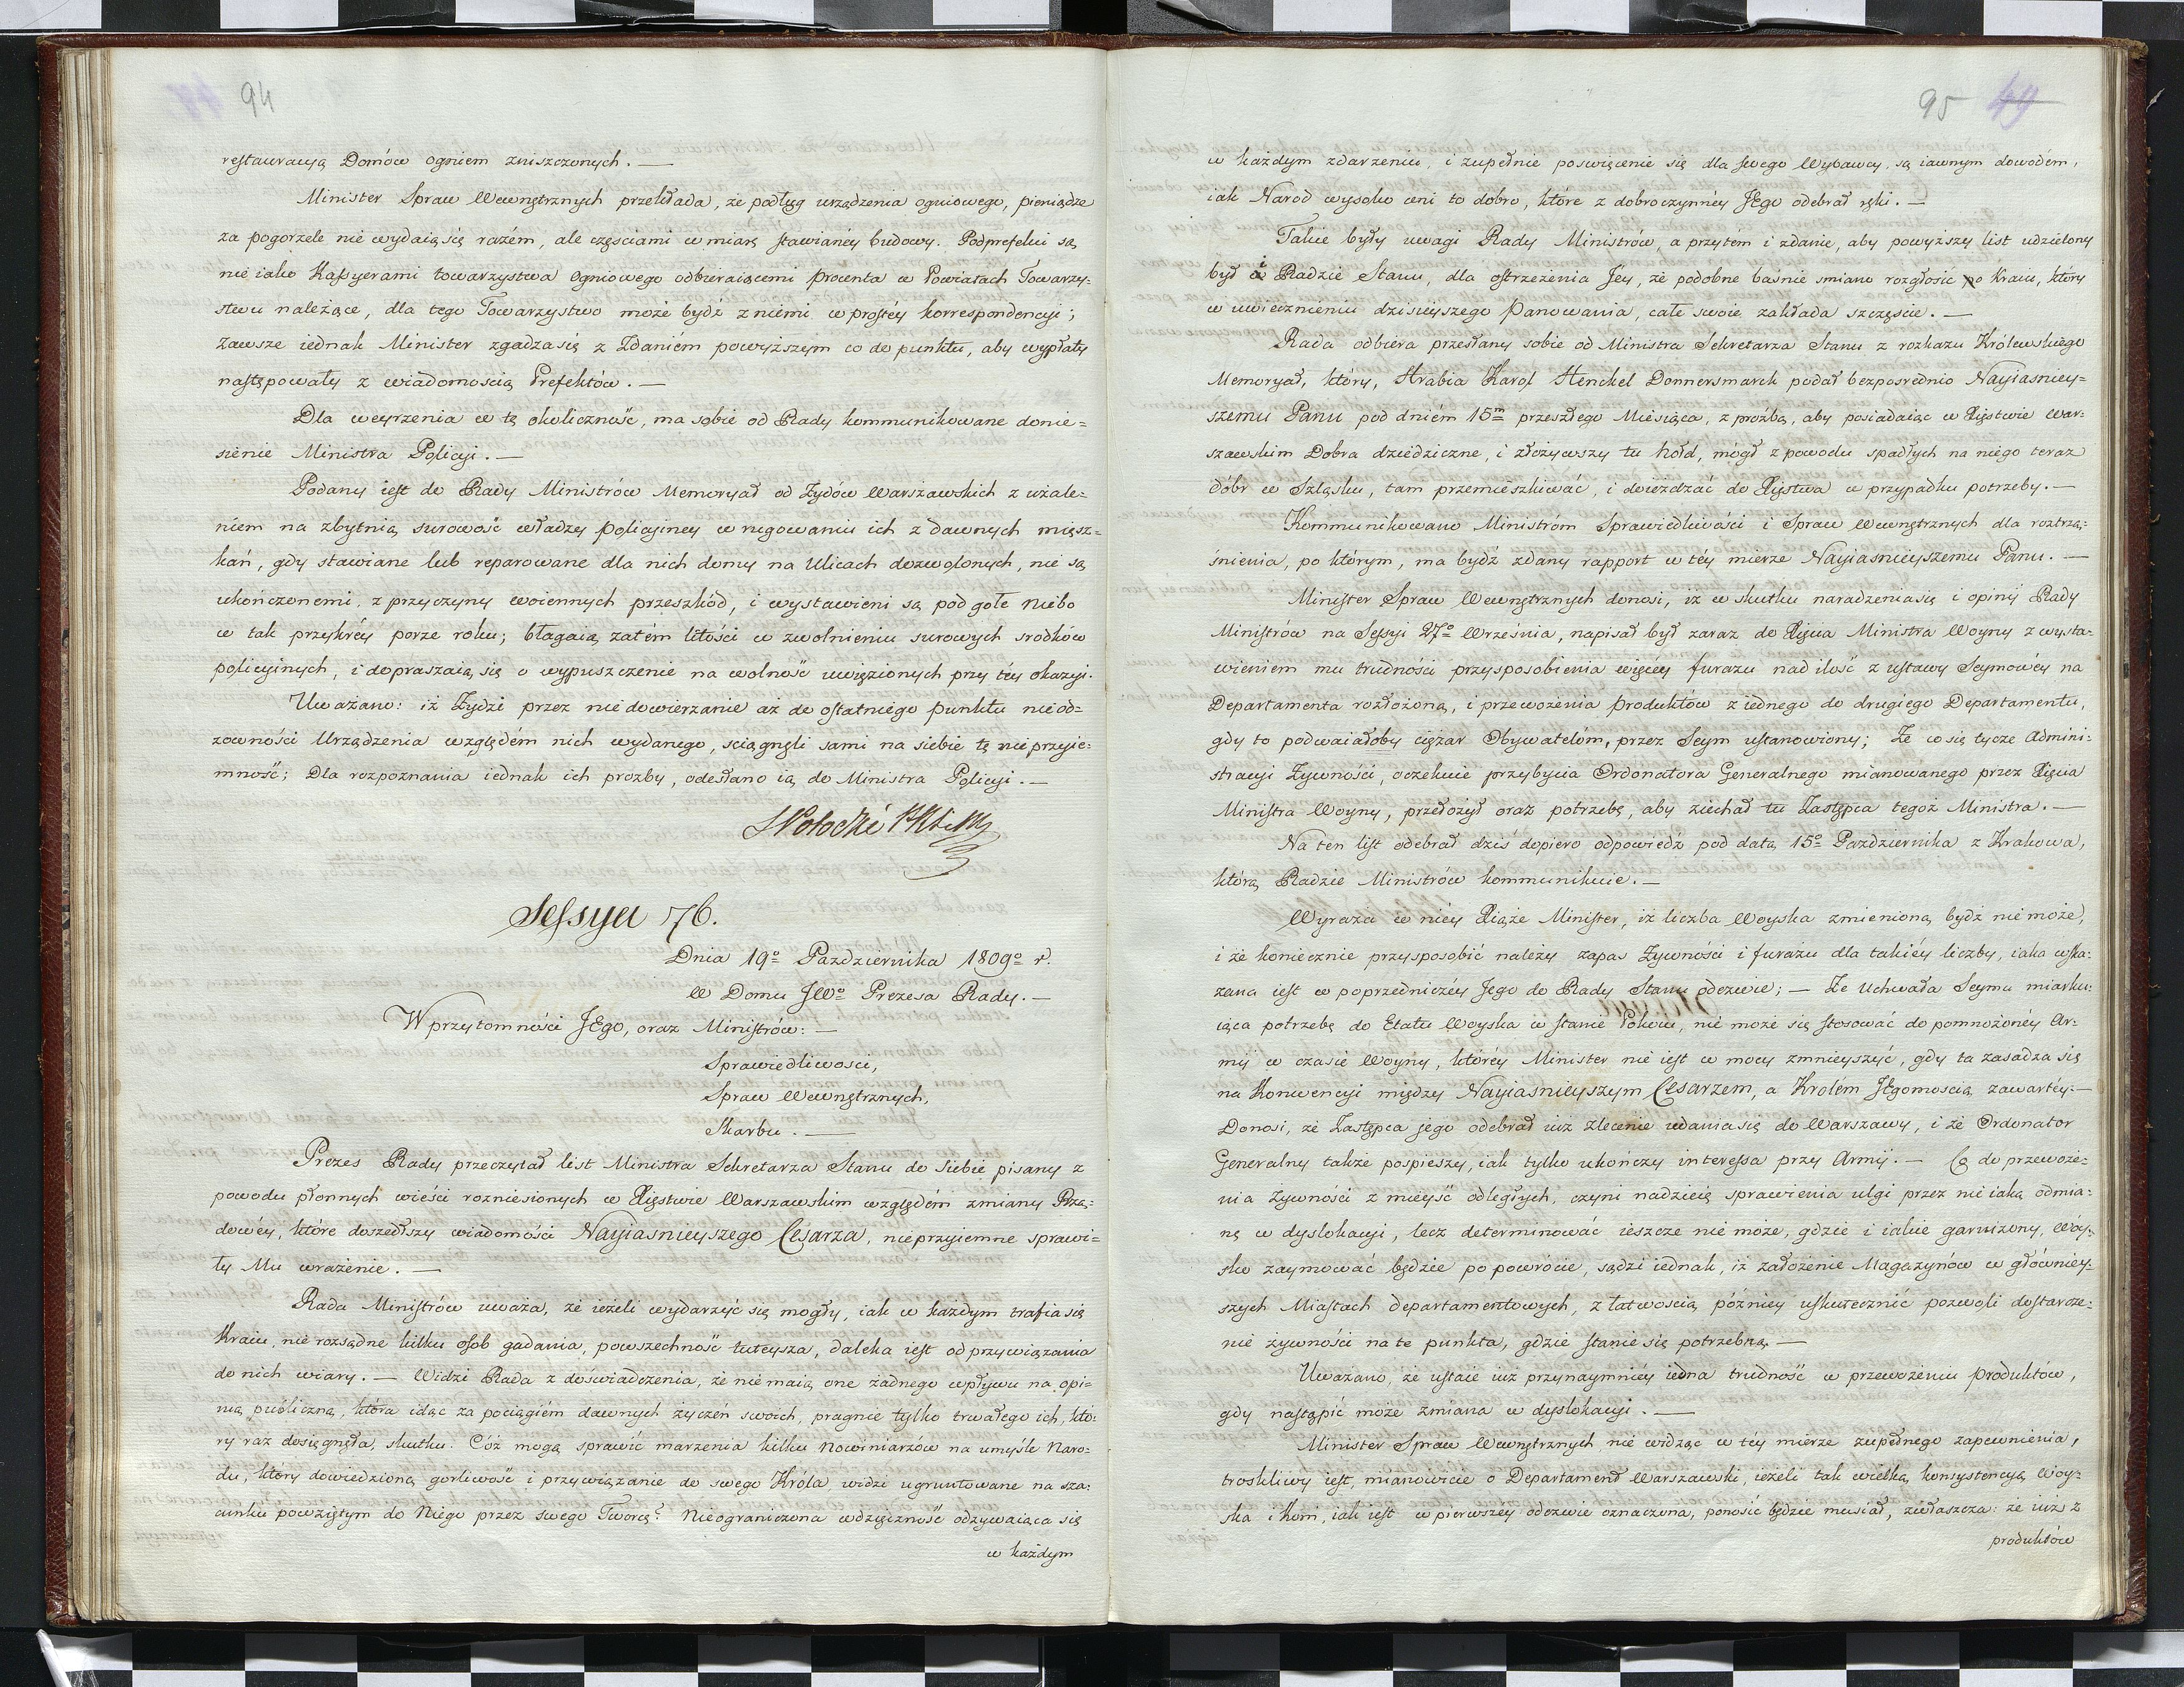 94
restauracyą Domów ogniem zniszczonych. —
Minister Spraw Wewnętrznych przekłada, że podług urządzenia ogniowego, pieniądze
za pogorzele nie wydaią się razém, ale częściami w miarę stawianéy budowy. Podprefekci są
nie iako Kassyerami towarzystwa Ogniowego odbieraiącemi procenta w Powiatach Towarzy=
stwu należące, dla tego Towarzystwo może bydź z niémi w prostéy korrespondencyi;
zawsze iednak Minister zgadza się z Zdaniém powyższym co do punktu, aby wypłaty
następowały z wiadomością Prefektów. —
Dla weyrzenia w tę okoliczność, ma sobie od Rady kommunikowane donie=
sienie Ministra Policyi. —
Podany iest do Rady Ministrów Memoryał od Żydów Warszawskich z użale=
niem na zbytnią surowość władzy policyiney w rugowaniu ich z dawnych miesz=
kań, gdy stawiane lub reparowane dla nich domy na Ulicach dozwolonych, nie są
ukończonemi, z przyczyny woiennych przeszkód, i wystawieni są pod gołe niebo
w tak przykréy porze roku; błagaią zatém litości w zwolnieniu surowych srodków
policyinych, i dopraszaią się o wypuszczenie na wolność uwięzionych przy téy okazyi.
Uważano: iż Żydzi przez niedowierzanie aż do ostatniego punktu nieod=
zowności Urządzenia względém nich wydanego, sciągnęli sami na siebie tę nieprzyie=
mność; Dla rozpoznania iednak ich prozby, odesłano ią do Ministra Policyi. —
Sessya 76.
Dnia 19º Pazdziernika 1809º r.
W Domu JWº Prezesa Rady. —
W przytomności JEgo, oraz Ministrów: —
Sprawiedliwosci,
Spraw Wewnętrznych,
Skarbu. —
Prezes Rady przeczytał list Ministra Sekretarza Stanu do siebie pisany z
powodu płonnych wieści rozniesionych w Xięstwie Warszawskim względém zmiany Rzą=
dowéy, które doszedłszy wiadomości Nayiasnieyszego Cesarza, nieprzyiemne sprawi=
ły Mu wrażenie. —
Rada Ministrów uważa, że ieżeli wydarzyć się mogły, iak w każdym trafia się
Kraiu, nie rozsądne kilku osób gadania, powszechność tuteysza, daleka iest od przywiązania
do nich wiary. — Widzi Rada z doświadczenia, że nie maią one żadnego wpływu na opi=
nią publiczną, która idąc za pociągiém dawnych życzeń swoich, pragnie tylko trwałego ich, któ=
ry raz dosięgnęła, skutku. Cóż mogą sprawić marzenia kilku Nowiniarzów na umyśle Naro=
du, który dowiedzioną gorliwość i przywiązanie do swego Króla widzi ugruntowane na sza=
cunku powziętym do Niego przez swego Twórcę? Nieograniczona wdzięczność odzywaiąca się
w każdym
95 49
w każdym zdarzeniu, i zupełnie poswięcenie się dla swego Wybawcy, są iawnym dowodem,
iak Naród wysoko ceni to dobro, które z dobroczynnéy JEgo odebrał ręki. —
Takie były uwagi Rady Ministrów, a przytém i zdanie, aby powyższy list udzielony
był i Radzie Stanu, dla ostrzeżenia Jey, że podobne baśnie smiano rozgłosić po Kraiu, który
w uwiecznieniu dzisieyszego Panowania, całe swoie zakłada szczęście. —
Rada odbiera przesłany sobie od Ministra Sekretarza Stanu z rozkazu Królewskiego
Memoryał, który, Hrabia Karol Henckel Donnersmarck podał bezposrednio Nayiasniey=
szemu Panu pod dniém 15m przeszłego Miesiąca, z prożbą, aby posiadaiąc w Xięstwie War=
szawskim Dobra dziedziczne, i złożywszy tu hołd, mógł z powodu spadłych na niego teraz
dóbr w Szląsku, tam przemieszkiwać, i doieżdzać do Xięstwa w przypadku potrzeby. —
Kommunikowano Ministróm Sprawiedliwości i Spraw Wewnętrznych dla roztrzą=
śnienia, po którym, ma bydź zdany rapport w téy mierze Nayiasnieyszemu Panu. —
Minister Spraw Wewnętrznych donosi, iż w skutku naradzenia się i opinij Rady
Ministrów na Sessyi 27º Września, napisał był zaraz do Xięcia Ministra Woyny z wysta=
wieniem mu trudności przysposobienia więcey furażu nad ilość z ustawy Seymowéy na
Departamenta rozłożoną, i przewożenia produktów z iednego do drugiego Departamentu,
gdy to podwaiałoby ciężar Obywatelóm, przez Seym ustanowiony; Że co się tycze Admini=
stracyi Żywności, oczekuie przybycia Ordonatora Generalnego mianowanego przez Xięcia
Ministra Woyny, przełożył oraz potrzebę, aby ziechał tu Zastępca tegoż Ministra. —
Na ten list odebrał dziś dopiero odpowiedź pod datą 15º Pazdziernika z Krakowa,
którą Radzie Ministrów kommunikuie. —
Wyraża w niéy Xiąże Minister, iż liczba Woyska zmienioną bydź nie może,
i że koniecznie przysposobić należy zapas Żywności i furażu dla takiéy liczby, iaka wska=
zana iest w poprzedniczéy Jego do Rady Stanu odezwie; — Że Uchwała Seymu miarku=
iąca potrzebę do Etatu Woyska w stanie Pokoiu, nie może się stosować do pomnożonéy Ar=
mij w czasie Woyny, któréy Minister nie iest w mocy zmnieyszyć, gdy ta zasadza się
na Konwencyi między Nayiasnieyszym Cesarzem, a Królém JEgomoscią zawartéy. —
Donosi, że Zastępca jego odebrał iuż zlecenie udania się do Warszawy, i że Ordonator
Generalny także pospieszy, iak tylko ukończy interessa przy Armij. — Co do przewoże=
nia żywności z mieysć odległych, czyni nadzieię sprawienia ulgi przez nie iaką odmia=
nę w dyslokacyi, lecz determinować ieszcze nie może, gdzie i iakie garnizony, Woy=
sko zaymować będzie po powrócie, sądzi iednak, iż założenie Magazynów w główniey=
szych Miastach departamentowych, z łatwoscią późniey uskutecznić pozwoli dostarcze=
nie żywności na te punkta, gdzie stanie się potrzebną. —
Uważano, że ustaie iuż przynaymniéy iedna trudność w przewożeniu produktów,
gdy nastąpić może zmiana w dyslokacyi. —
Minister Spraw Wewnętrznych nie widząc w téy mierze zupełnego zapewnienia,
troskliwy iest, mianowicie o Departament Warszawski, ieżeli tak wielką konsystencyą Woy=
ska i Koni, iak iest w pierwszéy odezwie oznaczona, ponosić będzie musiał, zwłaszcza: że iuż z
produktów